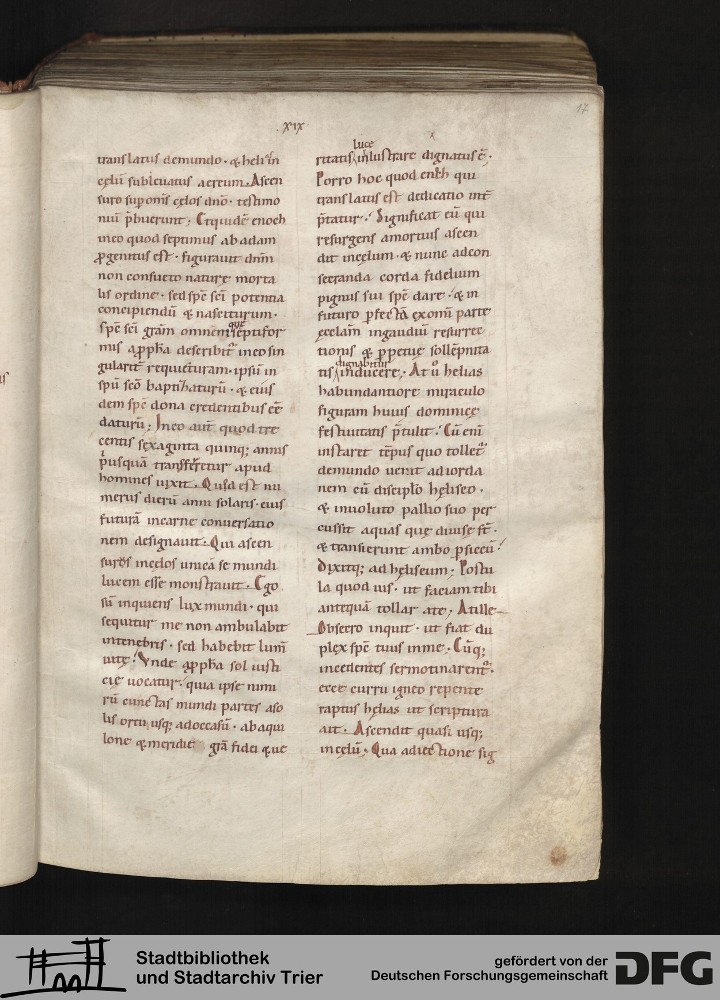 .xix.
17
translatus demundo · & heli in
cęlū subleuatus aereum. Ascen
suro sup om̄s cęlos dn̄o · testimo
niū p̄buerunt; Etquidē enoch
ineo quod septimus abadam
ꝓgenitus est · figurauit dnm̄
non consueto naturę morta
lis ordine · sed spē sci potentia
concipiendū & nasciturum ·
spē sci gr̄am omnem que septifor
mis a ꝓph̄a describit᷑ ineo sin
gularit̄ requieturam · ipsūm in
spū scō baptizaturū · & eius
dem spē dona credentibus eē
daturū; Ineo aut̄ quod tre
centis sexaginta quinq; annis
p̄usquā transferretur apud
homines uixit. Quia est nu
merus dierū anni solaris · eius
futurā incarne conuersatio
nem designauit. Qui ascen
surus incęlos unicā se mundi
lucem esse monstrauit. Ego
sū inquiens lux mundi · qui
sequitur me non ambulabit
intenebris · sed habebit lum̄
uitę; Vnde a ꝓph̄a sol iusti
cię uocatur; quia ipse nimi
rū cunctas mundi partes aso
lis ortu usq; adoccasū · abaqui
lone & meridie gr̄a fidei & ue
luce
ritatis illustrare dignatus ē.
Porro hoc quod enoch qui
translatus est dedicatio int̄
p̄tatur; Significat eū qui
resurgens amortuis ascen
dit incęlum · & nunc adcon
secranda corda fidelium
pignus sui spē dare; & in
futuro pfectā exomī parte
ęcclam̄ ingaudiū resurrec
tionis & ppetuę sollēpnita
dignabitur
tis inducere. At u̇ helias
habundantiore miraculo
figuram huius dominicę
festiuitatis p̄tulit; Cū enī
instaret tēpus quo tollet᷑
demundo uenit adiorda
nem cū discipło hęliseo ·
& inuoluto pallio suo per
cussit aquas quę diuisę st̄ ·
& transierunt ambo p siccū;
Dixitq; ad hęliseum; Postu
la quod uis · ut faciam tibi
antequā tollar ate; Atille
Obsecro inquit · ut fiat du
plex spē tuus inme; Cūq;
incedentes sermotinarent᷑ ·
ecce curru igneo repente
raptus hęlias ut scriptura
ait. Ascendit quasi usq;
incęlū; Qua adiectione sig
Stadtbibliothek
und Stadtarchiv Trier
gefördert von der
Deutschen Forschungsgemeinschaft
DFG